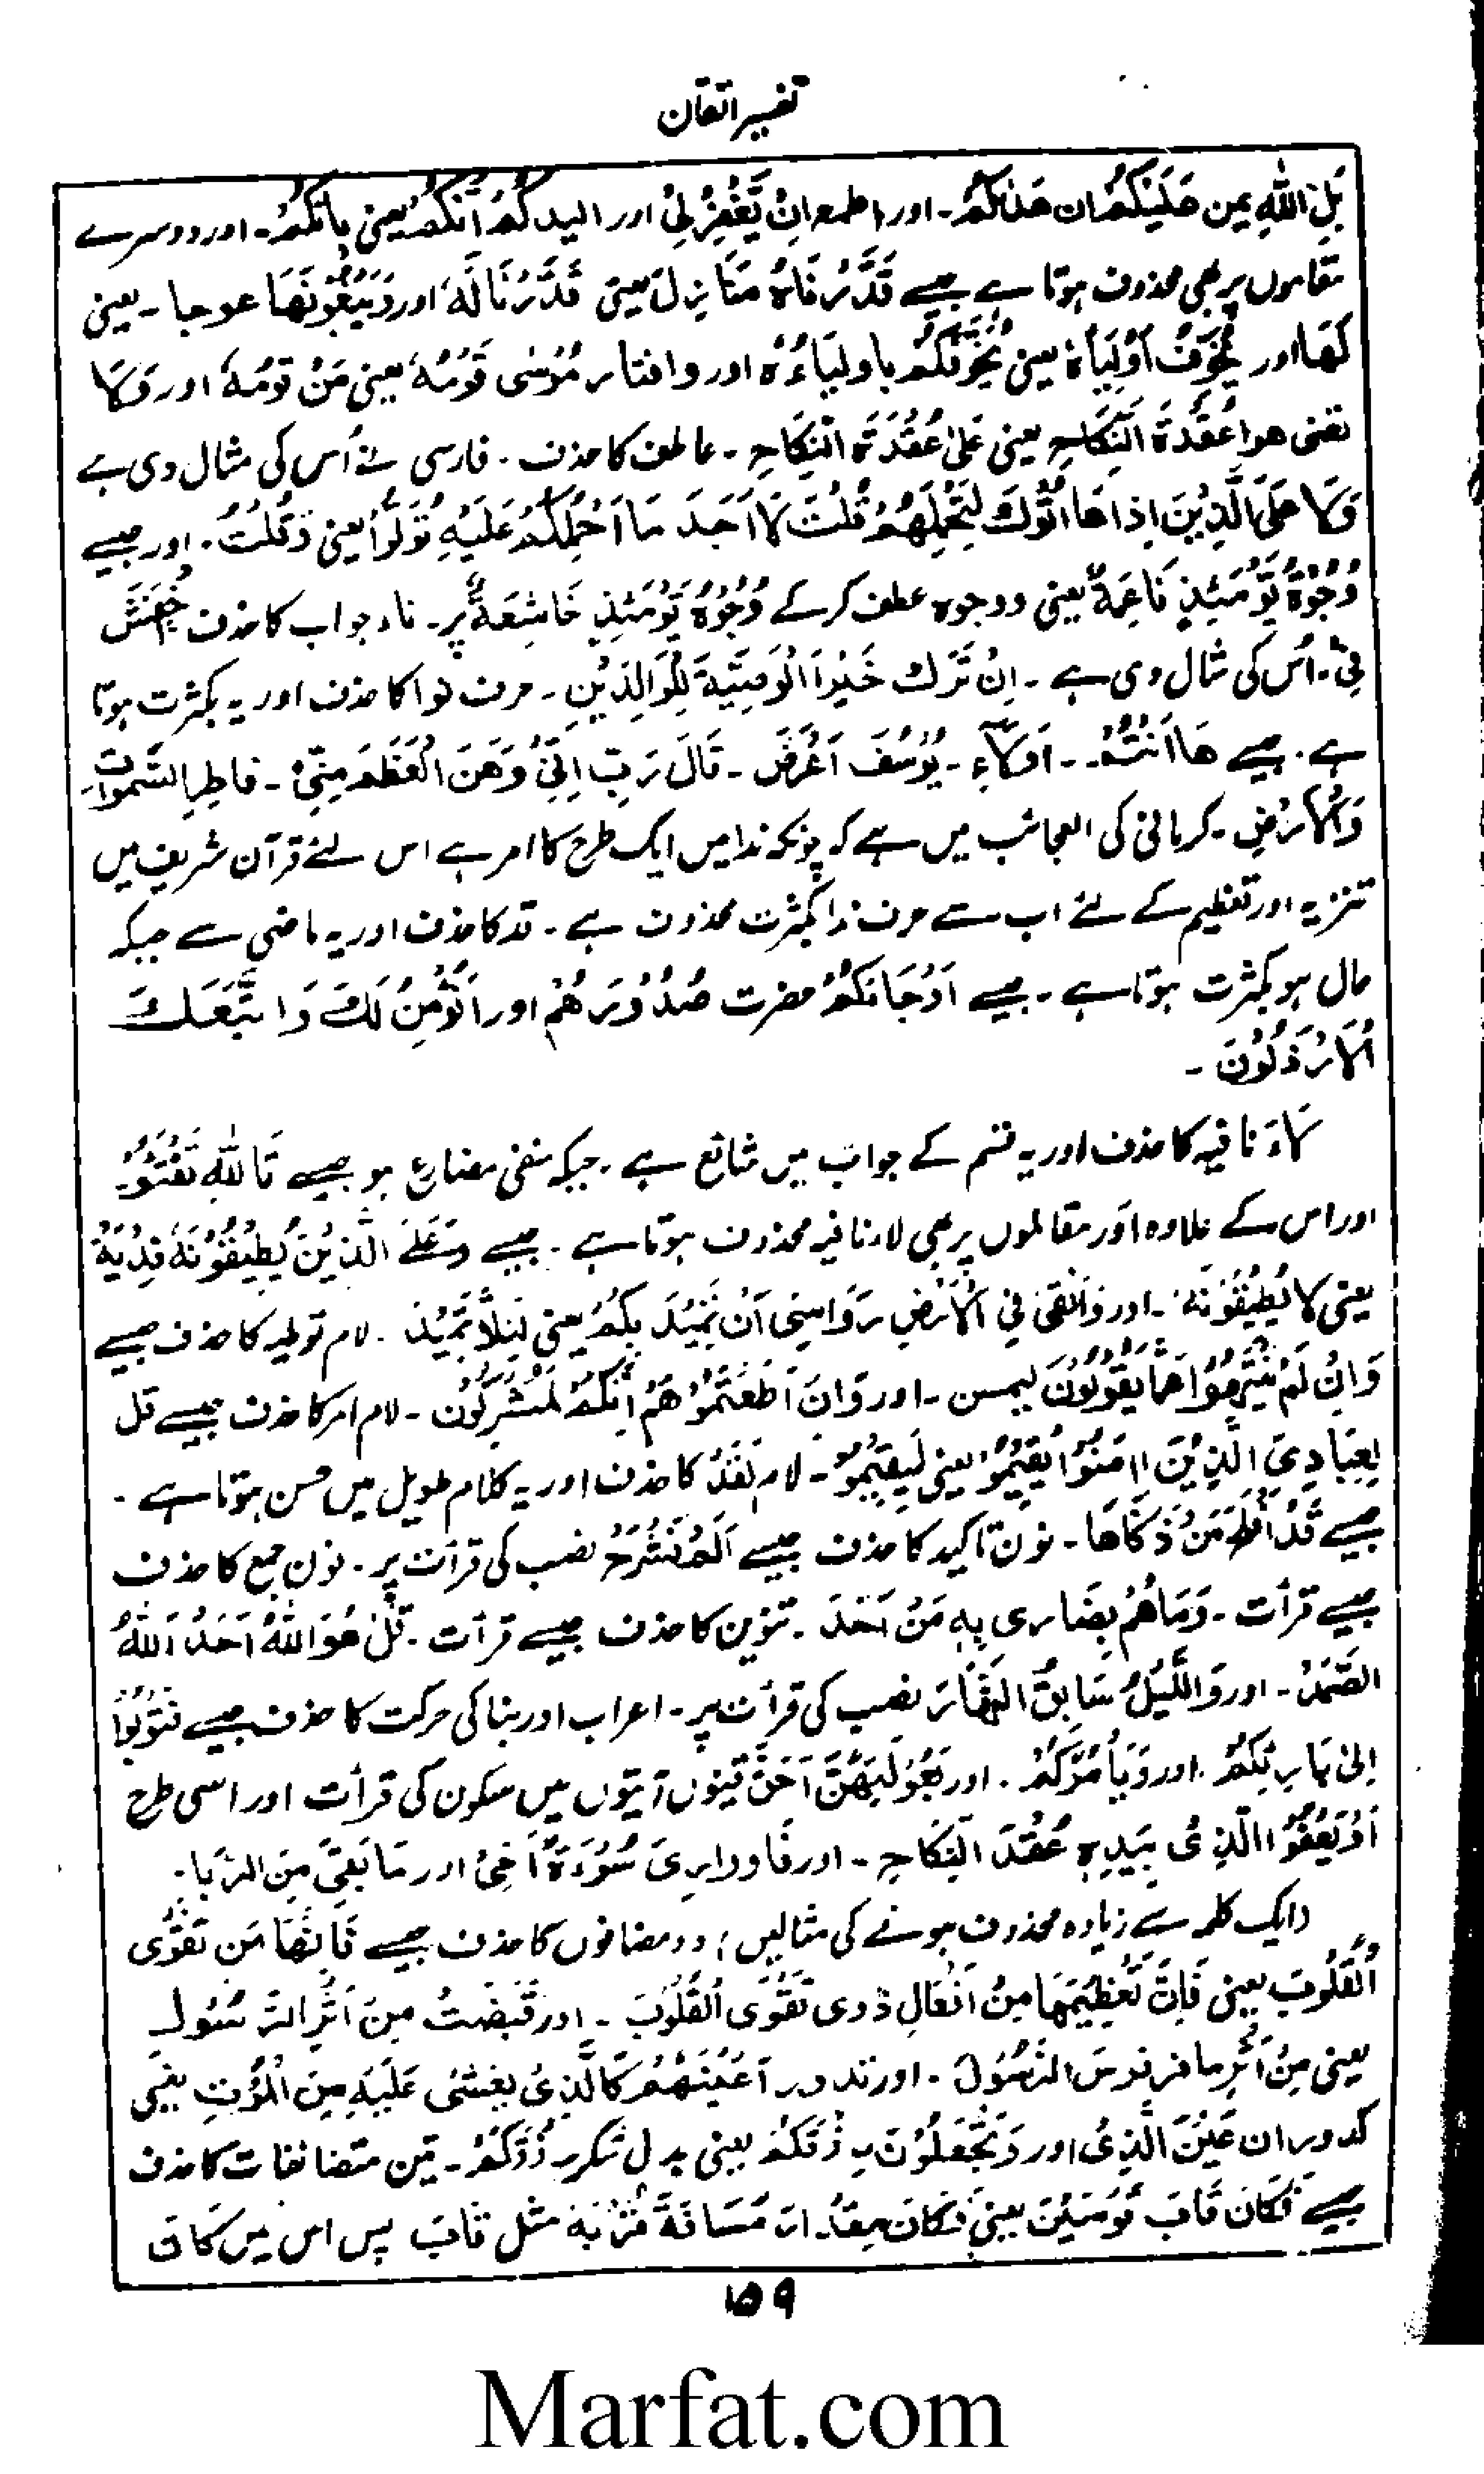 تفسیر اتقان
بَلِ اللّٰهِ یمن عَلَيْكُمْ ان هَدٰاكُمْ۔ اور اطمع اِنْ يَّغْفِرْ لِیْ اور ایعدکُمْ اَنَّكُمْ یعنی بِاَنَّكُمْ۔ اور دوسرے
مقاموں پر بھی محذوف ہوتا ہے جیسے قَدَّرْنَاهُ مَنَازِلَ یعنی قَدَّرْنَا لَهٗ اور وَيَبْغُوْنَهَا عوجا۔ یعنی
لَهَا اور يُخَوِّفُ اَوْلِيَآءَهٗ یعنی يُخَوِّفُكُمْ باولِيَاءِهٖ اور واختار مُوْسٰى قَوْمُهٗ یعنی مَنْ قومُهٗ اور وَلَا
تعزموا عُقْدَةَ النِّكَاحِ یعنی عَلٰى عُقْدَةِ النِّكَاحِ۔ عاطف کا حذف۔ فارسی نے اُس کی مثال دی ہے
وَلَا عَلَى الَّذِيْنَ اِذَا مَا اَتَوْكَ لِتَحْمِلَهُمْ قُلْتَ لَا اَجِدَ مَا اَحْمِلُكُمْ عَلَيْهِ تَوَلَّوْا یعنی وَقُلْتَ۔ اور جیسے
وُجُوْهٌ يَّوْمَئِذٍ نَّاعِمَةٌ یعنی ووجوه عطف کرکے وُجُوْهٌ يَّوْمَئِذٍ خَاشِعَةٌ پر۔ فاء جواب کا حذف اخفش
نے۔ اُس کی مثال دی ہے۔ اِنْ تَرَكَ خَيْراَ الْوَصِيَّةَ لِلْوَالِدَيْنِ۔ حرف ندا کا حذف اور یہ بکثرت ہوتا
ہے۔ جیسے هَا اَنْتُمْ۔ اولَآءِ۔ يُوْسُفَ اَعْرِضْ۔ قَالَ رَبِّ اِنِّیْ وَهَنَ الْعَظْمَ مِنِّیْ۔ فاطر السَّمٰوٰتِ
وَالْاَرْضِ۔ کرمانی کی العجائب میں ہے کہ چونکہ ندا میں ایک طرح کا امر ہے اس لئے قرآن شریف میں
تنزیہ اور تعظیم کے لئے اب سے حرف ندا بکثرت محذوف ہے۔ قد کا حذف اور یہ ماضی سے جبکہ
حال ہو بکثرت ہوتا ہے۔ جیسے اَوْجَاءُكُمْ حصرت صُدُوْرَهُمْ اور اَنُؤْمِنُ لَكَ وَاتَّبَعَكَ
الْاَرْذَلُوْنَ۔
لَاءَ نافیہ کا حذف اور یہ قسم کے جواب میں شائع ہے۔ جبکہ منفی مضارع ہو جیسے تَاللّٰهِ تَفْتَؤُ
اور اس کے علاوہ اَور مقاموں پر بھی لاء نافیہ محذوف ہوتا ہے۔ جیسے وَعَلَى الَّذِيْنَ يُطِيْقُوْنَهٗ فِدْيَةٌ
یعنی لَا يُطِيْقُوْنَهٗ۔ اور وَاَلْقٰى فِی الْاَرْضِ رَوَاسِیَ اَنْ تَمِيْدَ بِكُمْ یعنی لِئَلَّا تَمِيْدَ۔ لام توطیہ کا حذف جیسے
وَاِنْ لَّمْ يَنْتَهُوْا عَمَّا يَقُوْلُوْنَ لیمسن۔ اور وَاِنْ اَطَعْتُمُوْهُمْ اِنَّكُمْ لَمُشْرِكُوْن۔ لام امر کا حذف جیسے قل
لِعِبَادِیَ الَّذِيْنَ اٰمَنُوْا يُقِيْمُوْا یعنی لِيُقِيْمُوْا۔ لام لَقَدْ کا حذف اور یہ کلام طویل میں حسن ہوتا ہے۔
جیسے قَدْ اَفْلَحَ مَنْ ذَكّٰاهَا۔ نون تاکید کا حذف جیسے اَلَمْ نَشْرَحَ نصب کی قرأت پر۔ نون جمع کا حذف
جیسے قرأت۔ وَمَاهُمْ بِضَاری بِهٖ مَنْ اَحَدَ۔ تنوین کا حذف جیسے قرأت۔ قُلْ هُوَ اللّٰهُ اَحَدُ اَللّٰهُ
الصَّمَدْ۔ اور وَاللَّيْلُ سَابِقُ النَّهَارَ نصب کی قرأت پر۔ اعراب اور بنا کی حرکت کا حذف جیسے فَتُوْبُوْا
اِلٰى بَارِئِكُمْ۔ اور وَيَأْمُرْكُمْ۔ اور بَعُوْلَتْهُنَّ اَحَقُّ تینوں آیتوں میں سکون کی قرأت اور اسی طرح
اَوْ يَعْفُوْا الَّذِیْ بِيَدِهٖ عُقْدَ النِّكَاحِ۔ اور فَاوارِیَ سَوْءَةَ اَخِیْ اور مَا بَقِیَ مِنَ الرِّبَا۔
(ایک کلمہ سے زیادہ محذوف ہونے کی مثالیں؛ دو مضافوں کا حذف جیسے فَاِنَّهَا مَن تَقْوَى
الْقُلُوْبَ یعنی فَاِنَّ تَعْظِيْمَهَا مِنْ اَفْعَالِ ذوی تَقْوَى الْقُلُوْبَ۔ اور قَبَضْتُ مِنَ اَثَرِ الرَّسُوْلِ
یعنی مِنْ اَثَرِ حافر فرسَ الرَّسُوْلِ۔ اور تدور اَعْيُنَهُمْ كَالَّذِیْ يغشٰى عَلَيْهِ مِنَ الْمَوْتِ یعنی
کدوران عَيْنَ الَّذِیْ اور وَتَجْعَلُوْنَ رِزْقَكُمْ یعنی بدل شكرِ رزْقَكُمْ۔ تین متضائفات کا حذف
جیسے فَكَانَ قَابَ قَوْسَيْنَ یعنی فَكَانَ مِقْدَارَ مَسَافَةَ قُرْبَهٖ مثل قَابَ پس اس میں کَانَ
۱۵۹
Marfat.com